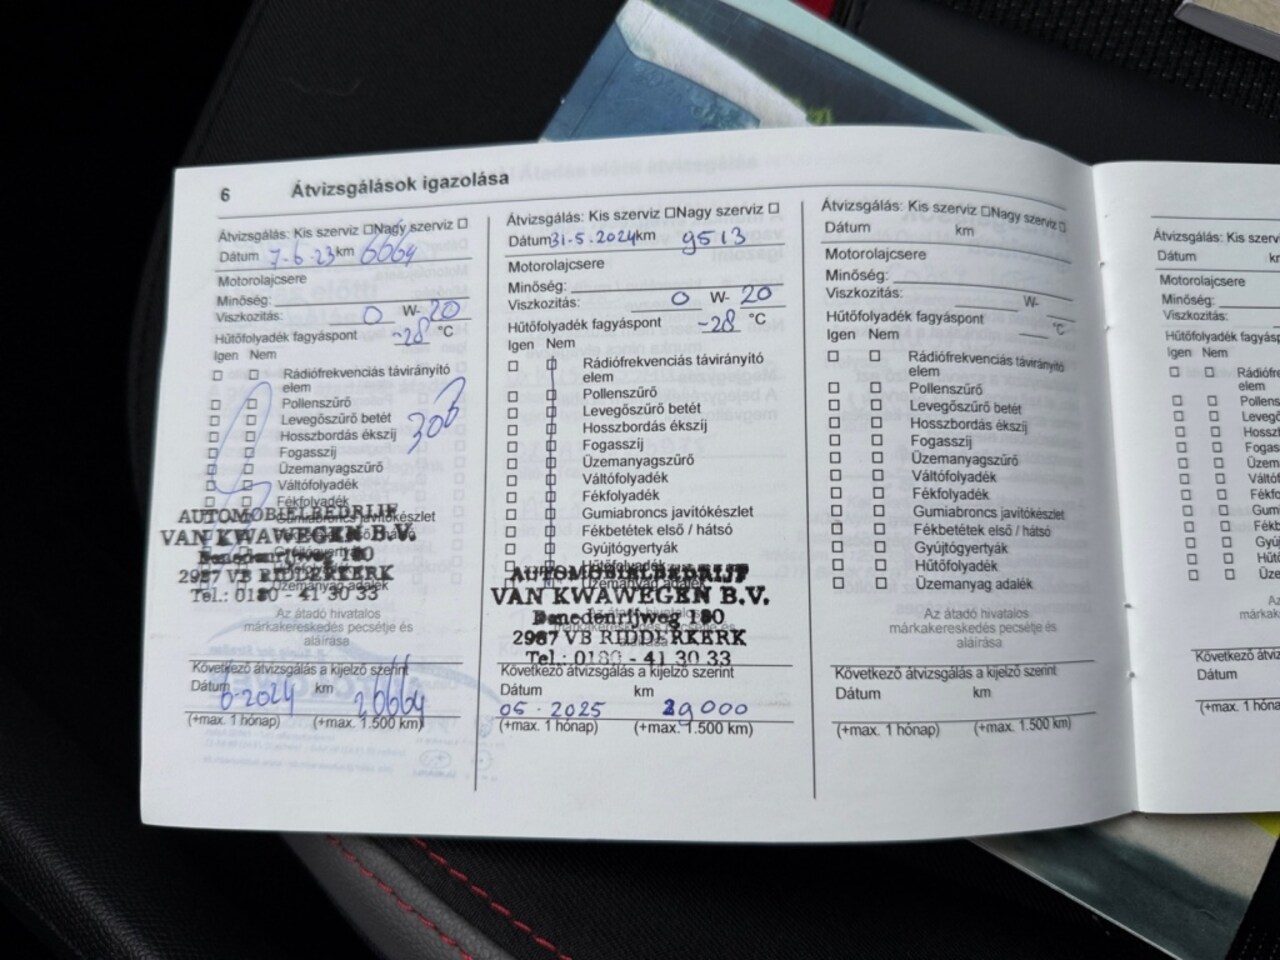 6 Átvizsgálások igazolása
Átvizsgálás: Kis szerviz □ Nagy szerviz □
Dátum 7-6-23 km 6664
Motorolajcsere
Minőség:
Viszkozitás: 0 W- 20
Hűtőfolyadék fagyáspont -28 °C
Igen Nem
Rádiófrekvenciás távirányító
elem
Pollenszűrő
Levegőszűrő betét
Hosszbordás ékszíj
Fogasszíj
Üzemanyagszűrő
Váltófolyadék
Fékfolyadék
AUTOMOBIELBEDRIJF
Gumiabroncs javítókészlet
VAN KWAWEGEN B.V.
Benedenrijweg 180
2987 VB RIDDERKERK
Üzemanyag adalék
Tel.: 0180 - 41 30 33
Az átadó hivatalos
márkakereskedés pecsétje és
aláírása
Következő átvizsgálás a kijelző szerint
Dátum 6-2024 km 26664
(+max. 1 hónap) (+max. 1.500 km)
Átvizsgálás: Kis szerviz □ Nagy szerviz □
Dátum 31-5-2024 km 9513
Motorolajcsere
Minőség:
Viszkozitás: 0 W- 20
Hűtőfolyadék fagyáspont -28 °C
Igen Nem
Rádiófrekvenciás távirányító
elem
Pollenszűrő
Levegőszűrő betét
Hosszbordás ékszíj
Fogasszíj
Üzemanyagszűrő
Váltófolyadék
Fékfolyadék
Gumiabroncs javítókészlet
Fékbetétek első / hátsó
Gyújtógyertyák
Hűtőfolyadék
AUTOMOBIELBEDRIJF
Üzemanyag adalék
VAN KWAWEGEN B.V.
Az átadó hivatalos
Benedenrijweg 180
2987 VB RIDDERKERK
Tel.: 0180 - 41 30 33
Következő átvizsgálás a kijelző szerint
Dátum km
05-2025 29000
(+max. 1 hónap) (+max. 1.500 km)
Átvizsgálás: Kis szerviz □ Nagy szerviz □
Dátum km
Motorolajcsere
Minőség:
Viszkozitás: W-
Hűtőfolyadék fagyáspont °C
Igen Nem
Rádiófrekvenciás távirányító
elem
Pollenszűrő
Levegőszűrő betét
Hosszbordás ékszíj
Fogasszíj
Üzemanyagszűrő
Váltófolyadék
Fékfolyadék
Gumiabroncs javítókészlet
Fékbetétek első / hátsó
Gyújtógyertyák
Hűtőfolyadék
Üzemanyag adalék
Az átadó hivatalos
márkakereskedés pecsétje és
aláírása
Következő átvizsgálás a kijelző szerint
Dátum km
(+max. 1 hónap) (+max. 1.500 km)
Átvizsgálás: Kis szerv
Dátum
Motorolajcsere
Minőség:
Viszkozitás:
Hűtőfolyadék fagyásp
Igen Nem
Rádiófre
elem
Pollens
Levego
Hossz
Fogas
Üzem
Válto
Fékf
Gum
Fék
Gyú
Hűt
Üze
Következő átvizs
Dátum
(+max. 1 hóna